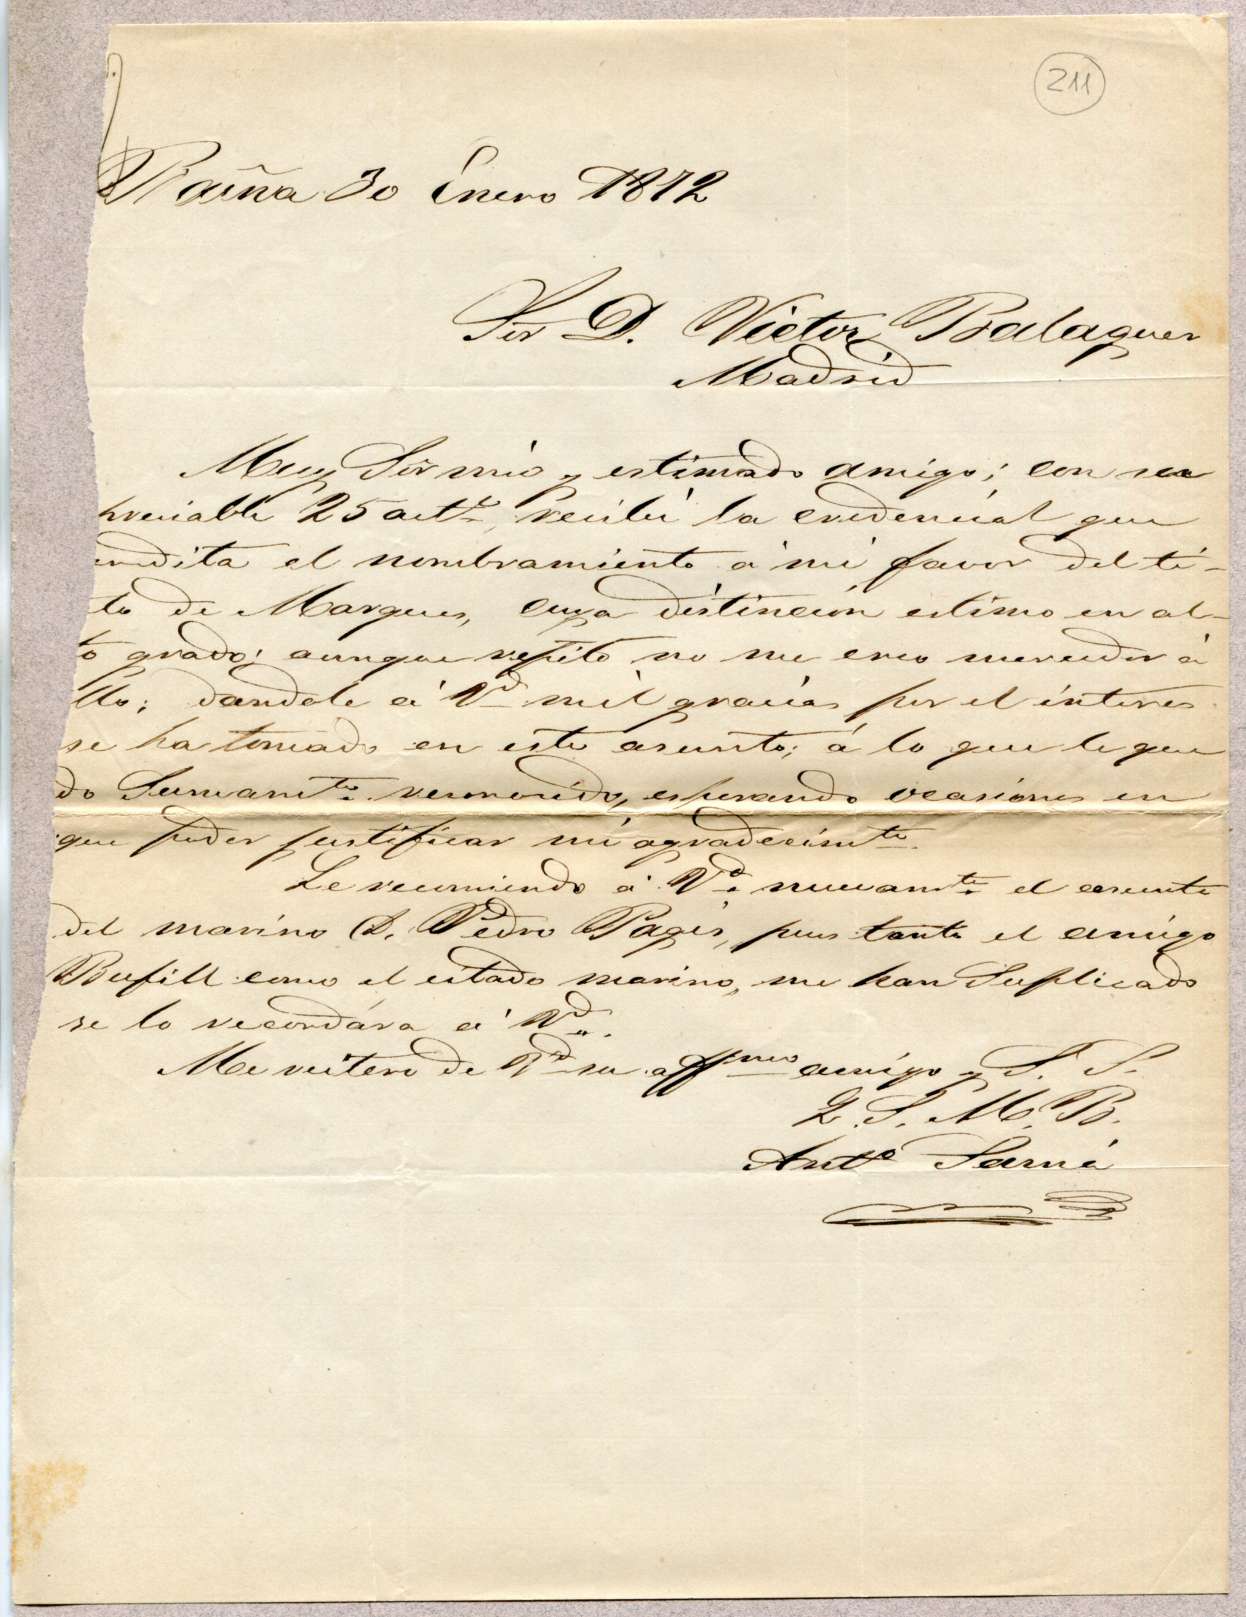 211
Bañá 30 Enero 1872
Sor D. Victor Balaguer
Madrid
Muy Sór mio y estimado amigo; con su
preciable 25 actl. recibí la credencial que
credita el nombramiento á mi favor del ti-
to de Marques, cuya distincion estimo en al-
to grado; aunque repito no me creo merecedor á
llo; dandole á Vd. mil gracias por el interes
se ha tomado en este asunto; á lo que le que
do Sumamte. reconocido, esperando ocasiones en
que poder justificar mi agradecimto.
Le recomiendo á Vd. nuevamte. el asunto
del marino D. Pedro Pagés, pues tanto el amigo
Bufill como el estado marino, me han Suplicado
se lo recordára á Vd.
Me reitero de Vd. su affmo amigo y S. S.
Q. S. M. B.
Anto. Samá